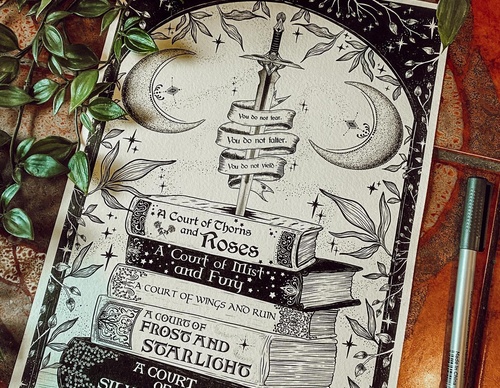 You do not fear.
You do not falter.
You do not yield.
A Court of Thorns
and Roses
A Court of Mist
and Fury
A COURT OF WINGS AND RUIN
A COURT OF
FROST AND
STARLIGHT
A COURT
OF